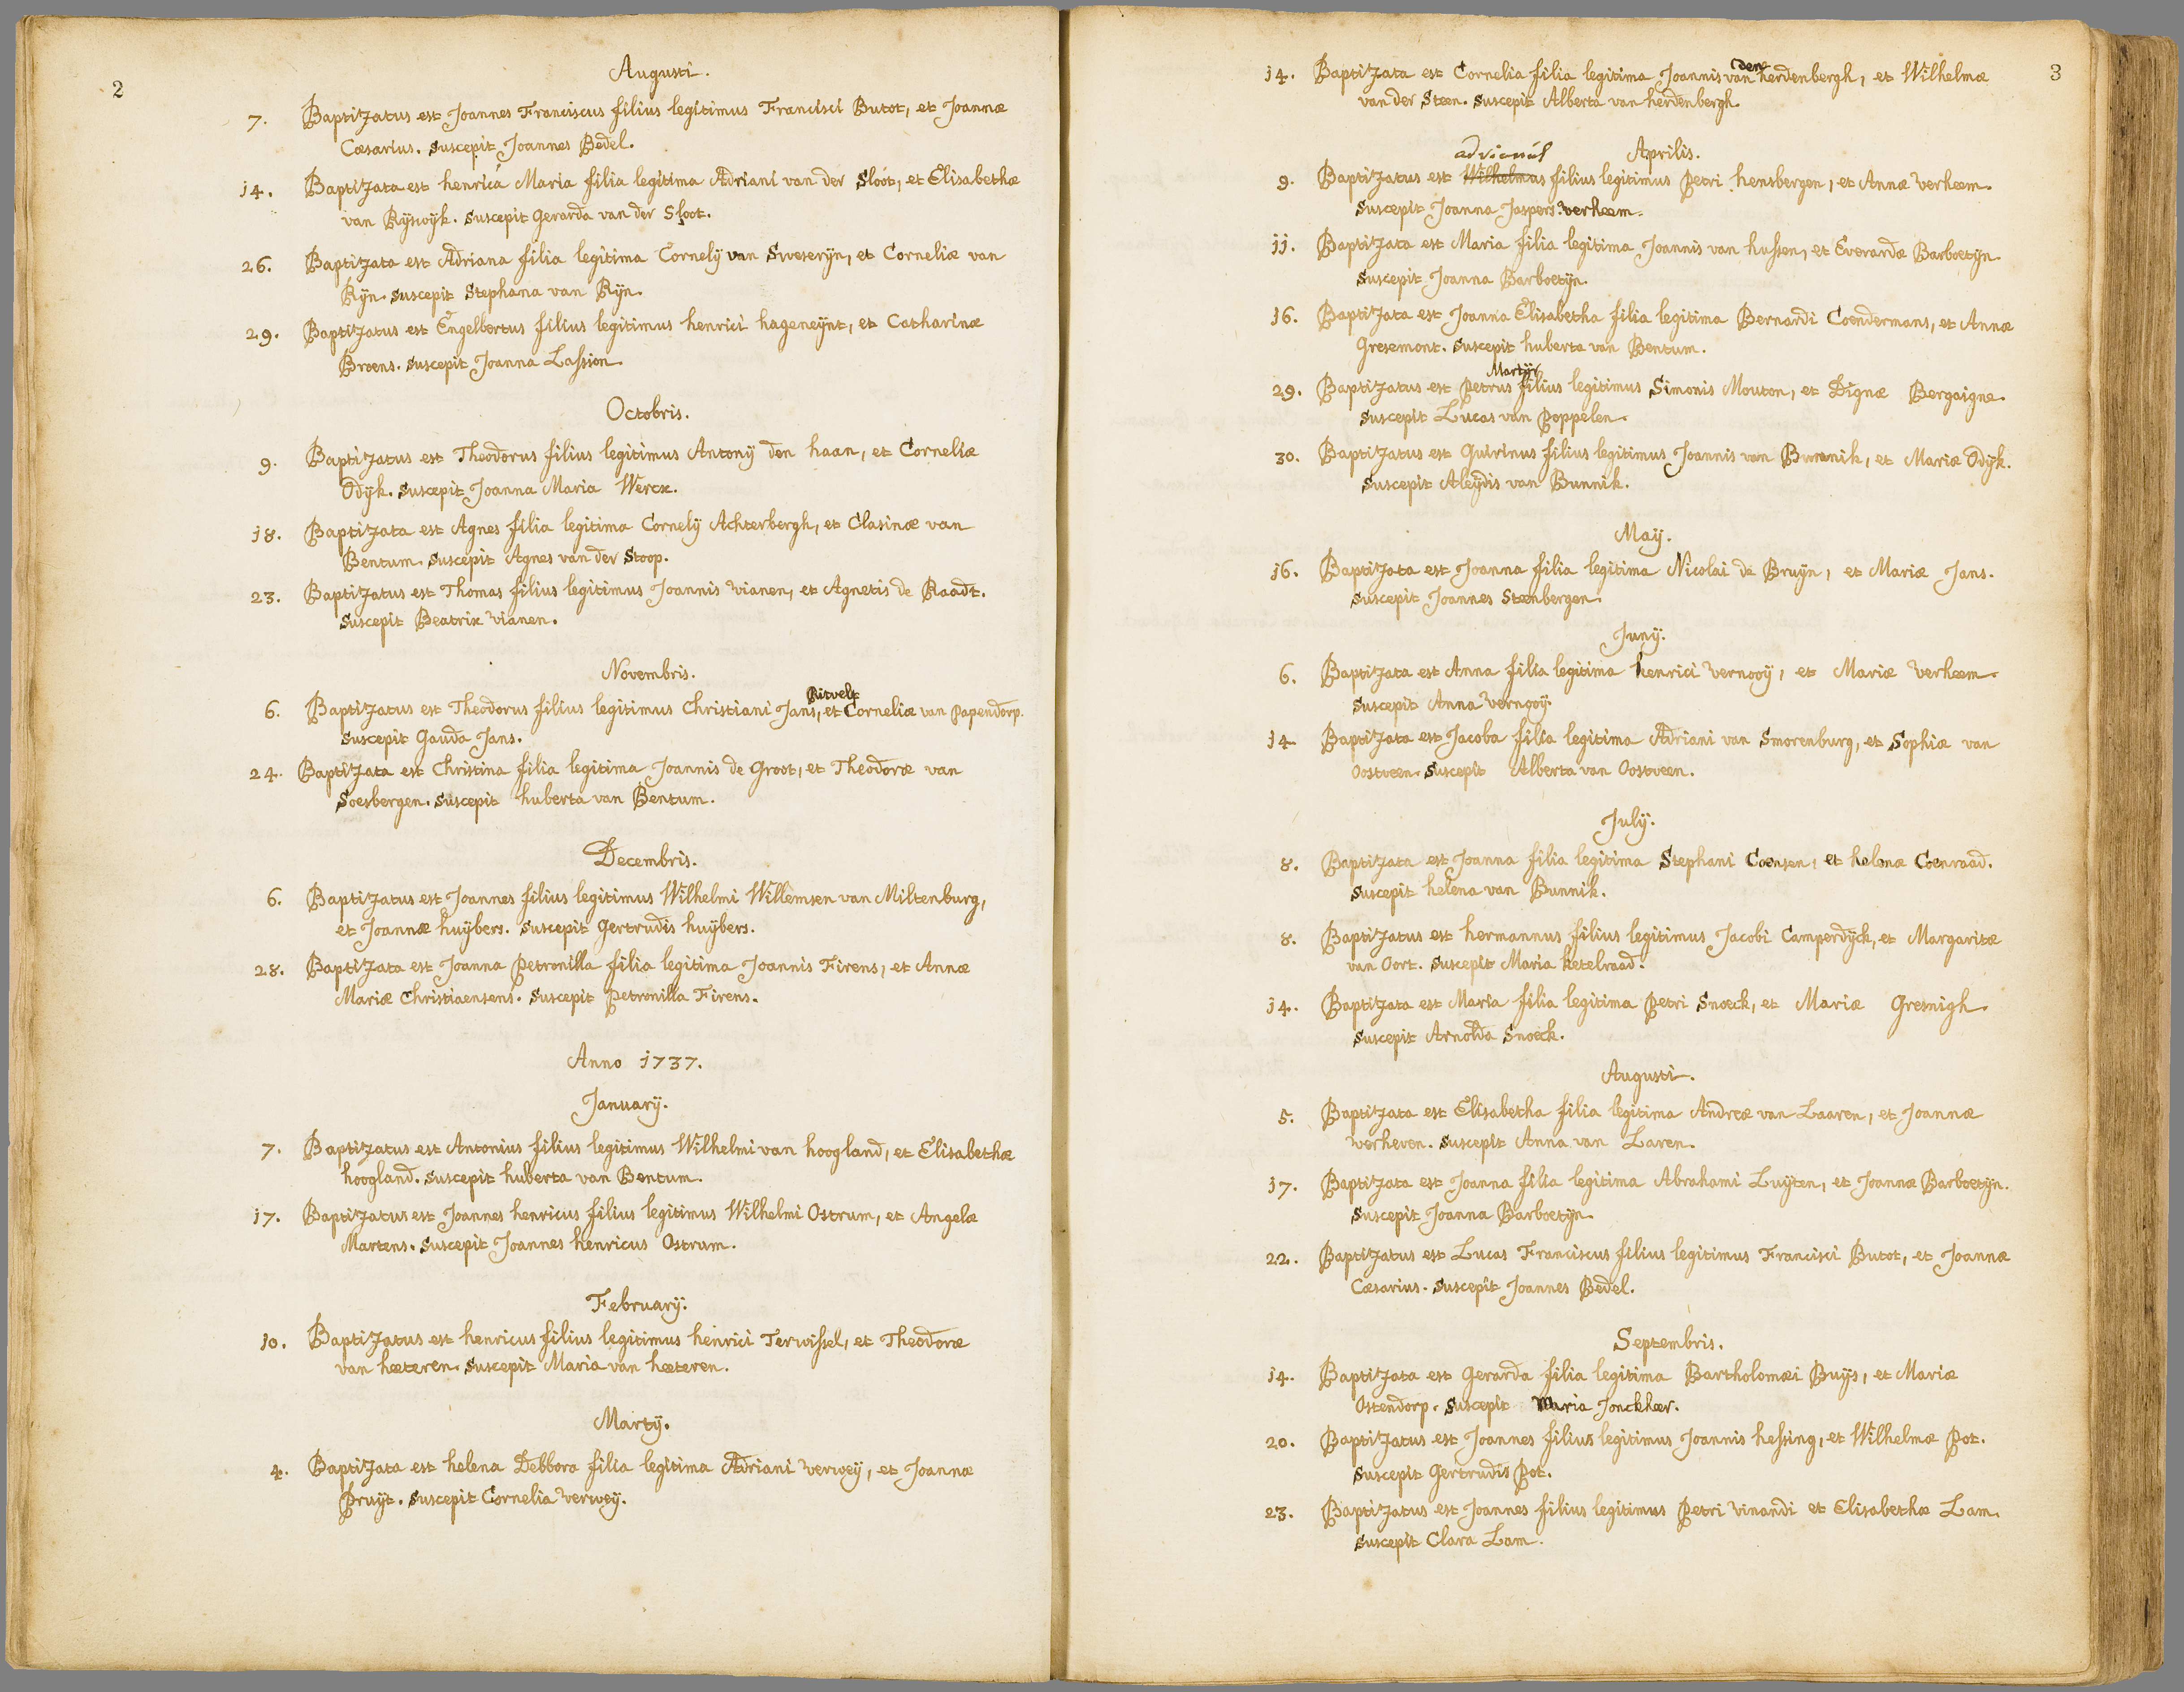 2
Augusti.
7. Baptizatus est Joannes Franciscus filius legitimus Francisci Butot, et Joannæ
Cæsarius. suscepit Joannes Bedel.
14. Baptizata est henrica Maria filia legitima Adriani van der Sloot, et Elisabethæ
van Rijswijk. suscepit Gerarda van der Sloot.
26. Baptizata est Adriana filia legitima Cornelij van Sweserijn, et Corneliæ van
Rijn. suscepit Stephana van Rijn.
29. Baptizatus est Engelbertus filius legitimus henrici hageneijnt, et Catharinæ
Broens. suscepit Joanna Lassion.
Octobris.
9. Baptizatus est Theodorus filius legitimus Antonij den haan, et Corneliæ
Odijk. suscepit Joanna Maria Werck.
18. Baptizata est Agnes filia legitima Cornelij Achterbergh, et Clasinæ van
Bentum. suscepit Agnes van der Stoop.
23. Baptizatus est Thomas filius legitimus Joannis vianen, et Agnetis de Raadt.
suscepit Beatrix vianen.
Novembris.
Ritvelt
6. Baptizatus est Theodorus filius legitimus Christiani Jans, et Corneliæ van Papendorp.
suscepit Gauda Jans.
24. Baptizata est Christina filia legitima Joannis de Groot, et Theodoræ van
Soesbergen. suscepit huberta van Bentum.
Decembris.
6. Baptizatus est Joannes filius legitimus Wilhelmi Willemsen van Miltenburg,
et Joannæ huijbers. suscepit Gertrudis huijbers.
28. Baptizata est Joanna Petronilla filia legitima Joannis Firens, et Annæ
Mariæ Christiaensens. suscepit Petronilla Firens.
Anno 1737.
Januarij.
7. Baptizatus est Antonius filius legitimus Wilhelmi van hoogland, et Elisabethæ
hoogland. suscepit huberta van Bentum.
17. Baptizatus est Joannes henricus filius legitimus Wilhelmi Ostrum, et Angelæ
Martens. suscepit Joannes henricus Ostrum.
Februarij.
10. Baptizatus est henricus filius legitimus henrici Terwissel, et Theodoræ
van heeteren. suscepit Maria van heeteren.
Martij.
4. Baptizata est helena Debbora filia legitima Adriani verweij, et Joannæ
Pruijt. suscepit Cornelia verweij.
3
den
14. Baptizata est Cornelia filia legitima Joannis van herdenbergh, et Wilhelmæ
van der Steen. suscepit Alberta van herdenbergh.
Aprilis.
9. Baptizatus est Wilhelmus filius legitimus Petri hensbergen, et Annæ verheem.
suscepit Joanna Jaspers verheem.
11. Baptizata est Maria filia legitima Joannis van hussen, et Everardæ Barboetijn.
suscepit Joanna Barboetijn.
16. Baptizata est Joanna Elisabetha filia legitima Bernardi Coendermans, et Annæ
Gresemont. suscepit huberta van Bentum.
Martijr
29. Baptizatus est Petrus filius legitimus Simonis Mouton, et Dignæ Bergaigne.
suscepit Lucas van Poppelen.
30. Baptizatus est Quirinus filius legitimus Joannis van Bunnik, et Mariæ Odijk.
suscepit Aleijdis van Bunnik.
Maij.
16. Baptizata est Joanna filia legitima Nicolai de Bruijn, et Mariæ Jans.
suscepit Joannes Steenbergen.
Junij.
6. Baptizata est Anna filia legitima henrici vernooij, et Mariæ verheem.
suscepit Anna vernooij.
14. Baptizata est Jacoba filia legitima Adriani van Smorenburg, et Sophiæ van
Oostveen. suscepit Alberta van Oostveen.
Julij.
8. Baptizata est Joanna filia legitima Stephani Coensen, et helenæ Coenraad.
suscepit helena van Bunnik.
8. Baptizatus est hermannus filius legitimus Jacobi Camperdijck, et Margaritæ
van Oort. suscepit Maria ketelraad.
14. Baptizata est Maria filia legitima Petri Snoeck, et Mariæ Gresnigh.
suscepit Arnolda Snoeck.
Augusti.
5. Baptizata est Elisabetha filia legitima Andreæ van Laaren, et Joannæ
verheren. suscepit Anna van Laren.
17. Baptizata est Joanna filia legitima Abrahami Luijten, et Joannæ Barboetijn.
suscepit Joanna Barboetijn.
22. Baptizatus est Lucas Franciscus filius legitimus Francisci Butot, et Joannæ
Cæsarius. suscepit Joannes Bedel.
Septembris.
14. Baptizata est Gerarda filia legitima Bartholomæi Buijs, et Mariæ
Ostendorp. suscepit Maria Jonckheer.
20. Baptizatus est Joannes filius legitimus Joannis hessing, et Wilhelmæ Pot.
suscepit Gertrudis Pot.
23. Baptizatus est Joannes filius legitimus Petri vinandi et Elisabethæ Lam.
suscepit Clara Lam.